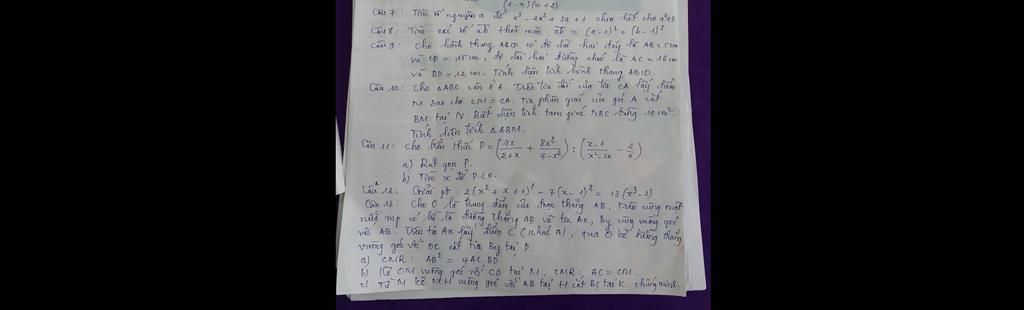 (1-x)(x+2)
Câu 7: Tìm số nguyên a để a³ - 2a² + 3a + 1 chia hết cho a²+3
Câu 8: Tìm các số ab thỏa mãn ab = (a-1)² + (b-1)²
Câu 9: Cho hình thang ABCD có độ dài hai đáy là AB = 5cm
và CD = 15cm, độ dài hai đường chéo là AC = 16cm
và BD = 12cm. Tính diện tích hình thang ABCD.
Câu 10: Cho △ABC cân ở A. Trên tia đối của tia CA lấy điểm
M sao cho CM = CA. Tia phân giác của góc A cắt
BM tại N. Biết diện tích tam giác NBC bằng 10cm².
Tính diện tích △ABM.
Câu 11: Cho biểu thức P = (4x/(2+x) + 8x²/(4-x²)) : ((x-1)/(x²-2x) - 2/x)
a) Rút gọn P.
b) Tìm x để P < 0.
Câu 12: Giải pt: 2(x² + x + 1)² - 7(x-1)² = 13(x³-1)
Câu 13: Cho O là trung điểm của đoạn thẳng AB. Trên cùng một
nửa mp có bờ là đường thẳng AB vẽ tia Ax, By cùng vuông góc
với AB. Trên tia Ax lấy điểm C (khác A), qua O kẻ đường thẳng
vuông góc với OC cắt tia By tại D.
a) CMR: AB² = 4AC.BD.
b) Kẻ OM vuông góc với CD tại M. CMR: AC = CM.
c) Từ M kẻ MH vuông góc với AB tại H cắt BC tại K. chứng minh.